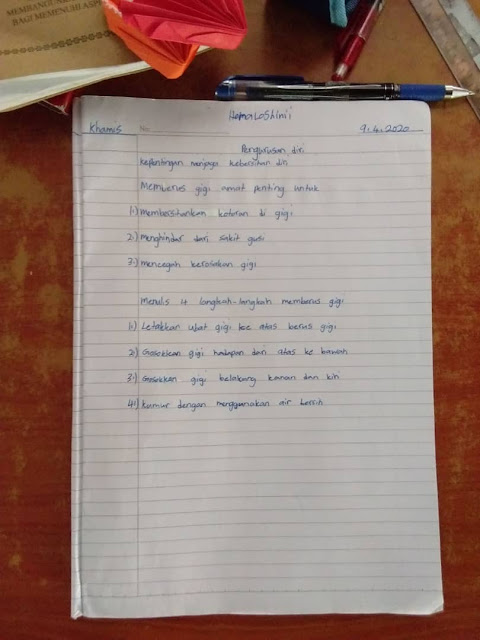 MEMBANGUN
BAGI MEMENUHI ASP
HemaLoShinii
Khamis No: 9.4.2020
Pengurusan diri
kepentingan menjaga kebersihan diri
Memberus gigi amat penting untuk
1.) Membersihkan kotoran di gigi
2.) Menghindar dari sakit gusi
3.) Mencegah kerosakan gigi
Menulis 4 langkah-langkah memberus gigi
1.) Letakkan ubat gigi ke atas berus gigi
2.) Gosokkan gigi hadapan dari atas ke bawah
3.) Gosokkan gigi belakang kanan dan kiri
4.) kumur dengan menggunakan air bersih